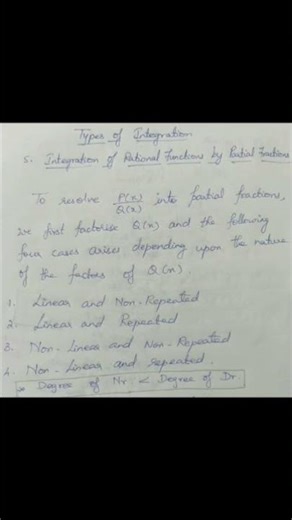 Types of Integration
5. Integration of Rational Functions by Partial Fractions
To resolve P(x)/Q(x) into partial fractions,
we first factorise Q(x) and the following
four cases arises depending upon the nature
of the factors of Q(x).
1. Linear and Non-Repeated
2. Linear and Repeated
3. Non-Linear and Non-Repeated
4. Non-Linear and repeated.
* Degree of Nr < Degree of Dr